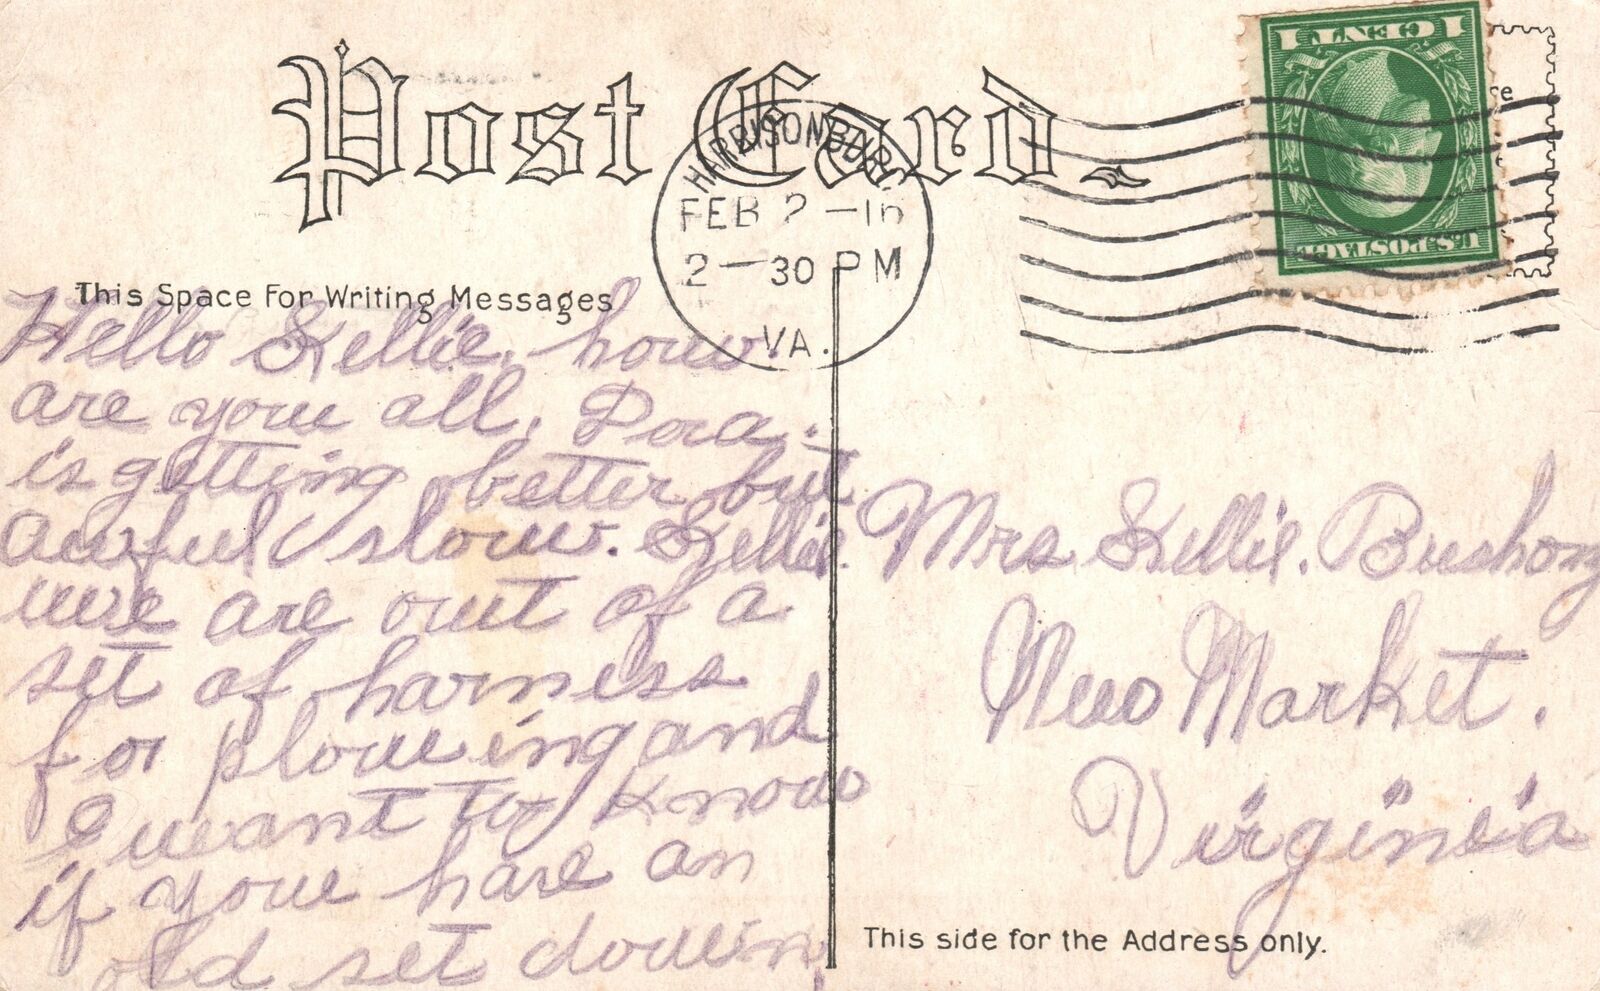 Post Card.
HARRISONBURG
FEB 2 - 16
2 - 30 PM
VA.
1 CENT 1
U.S. POSTAGE
This Space For Writing Messages
Hello Kellie, how
are you all, Dora.
is getting better but
awful slow. Kellie.
we are out of a
set of harness
for plowing and
I want to know
if you have an
old set down
Mrs Kellie. Bushong
New Market.
Virginia
This side for the Address only.